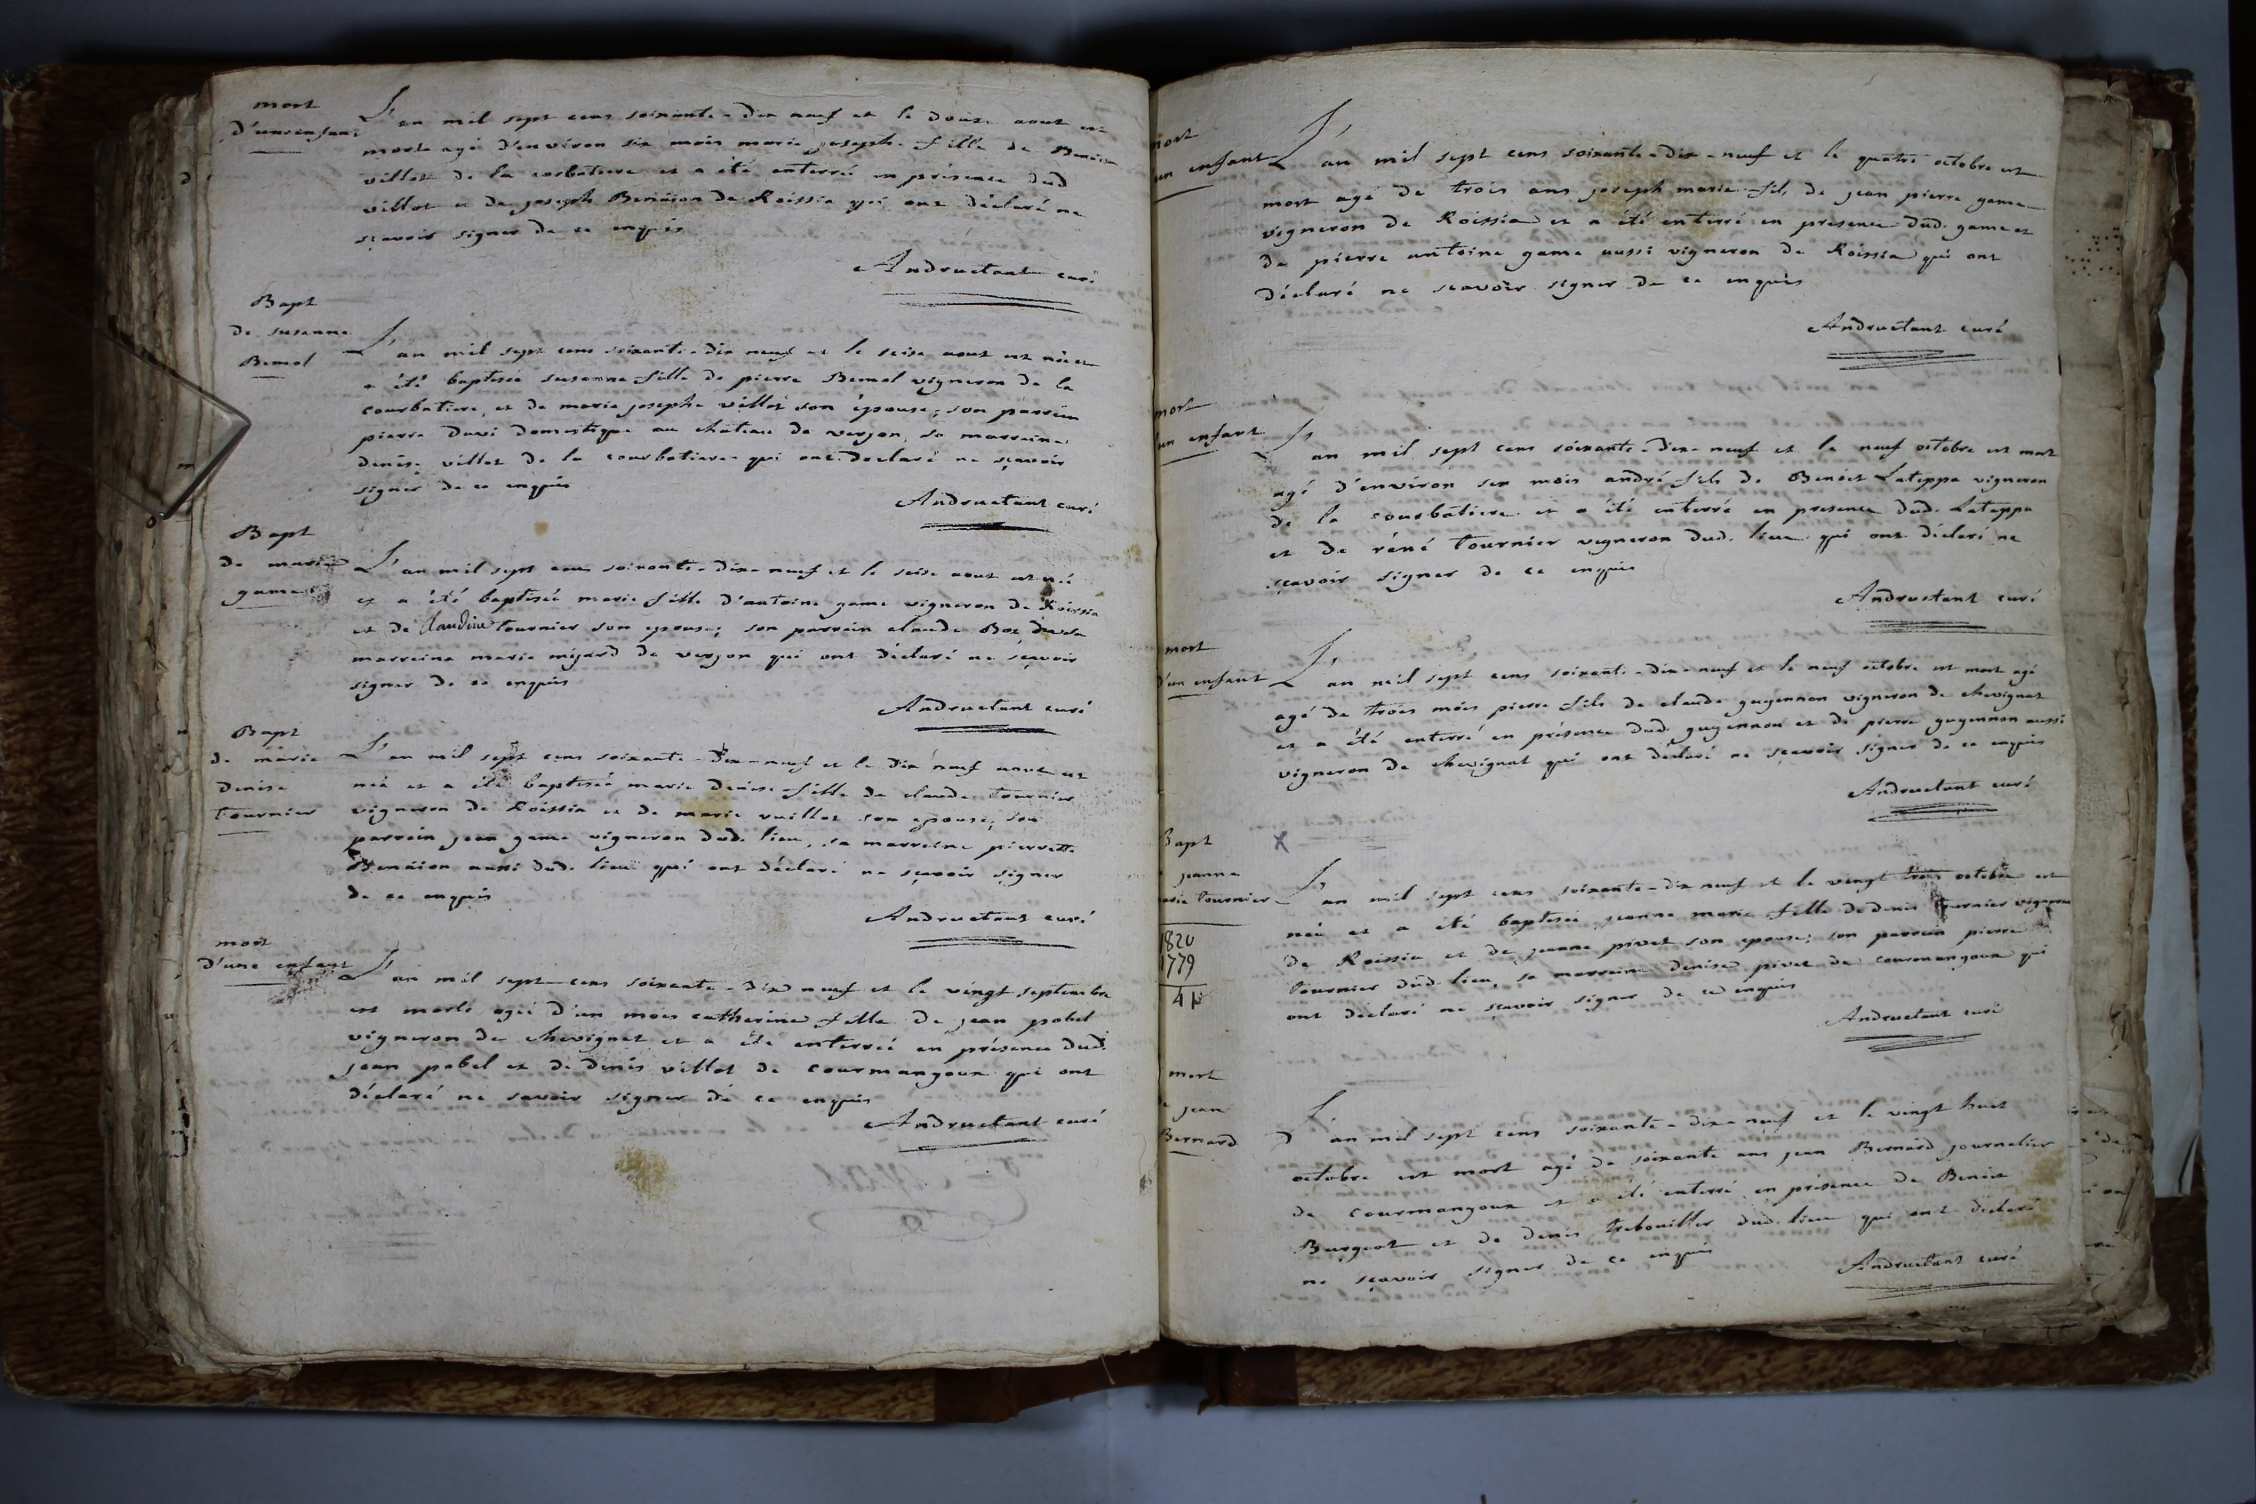 mort
d'un enfant
L'an mil sept cens soixante-dix neuf et le douze aout est
mort agé d'environ six mois marie joseph fille de Benoit
villot de la corbatiere et a été enterré en présence dud
villot et de joseph Benöion de Roissia qui ont déclaré ne
sçavoir signer de ce enquis
Andructant curé
Bapt
de susanne
Bemol
L'an mil sept cens soixante-dix neuf et le seise aout est née et
a été baptisée susanne fille de pierre Bemol vigneron de la
courbatiere, et de marie josephe villot son épouse; son parrain
pierre domestique au château de verjon, sa marreine
denise villot de la courbatiere qui ont declaré ne sçavoir
signer de ce enquis
Andructant curé
Bapt
de marie
game
L'an mil sept cens soixante-dix-neuf et le seise aout est né
et a été baptisée marie fille d'antoine game vigneron de Roissia
et de Claudine tournier son epouse; son parrain claude
marreine marie mijard de verjon qui ont déclaré ne sçavoir
signer de ce enquis
Andructant curé
Bapt
de marie
denise
tournier
L'an mil sept cens soixante-dix-neuf et le dix neuf aout est
née et a été baptisée marie denise fille de claude tournier
vigneron de Roissia et de marie vuillot son epouse; son
parrain jean game vigneron dud. lieu, sa marreine pierrette
Benöion aussi dud. lieu qui ont déclaré ne sçavoir signer
de ce enquis
Andructant curé
mort
d'une enfant
L'an mil sept cens soixante-dix neuf et le vingt septembre
est morte agée d'un mois catherine fille de jean pobel
vigneron de chevignat et a été enterrée en présence dud.
jean pobel et de denis villot de courmangoux qui ont
déclaré ne savoir signer de ce enquis
Andructant curé
mort
un enfant
L'an mil sept cens soixante-dix-neuf et le quatre octobre est
mort agé de trois ans joseph marie fils de jean pierre game
vigneron de Roissia et a été enterré en présence dud. game et
de pierre antoine game aussi vigneron de Roissia qui ont
déclaré ne sçavoir signer de ce enquis
Andructant curé
mort
un enfant
L'an mil sept cens soixante-dix-neuf et le neuf octobre est mort
agé d'environ six mois andré fils de Benoit Lateppe vigneron
de la courbatiere et a été enterré en presence dud. Lateppe
et de réné tournier vigneron dud. lieu qui ont déclaré ne
sçavoir signer de ce enquis
Andructant curé
mort
d'un enfant
L'an mil sept cens soixante-dix-neuf et le neuf octobre est mort agé
agé de trois mois pierre fils de claude guyennon vigneron de chevignat
et a été enterré en présence dud. guyennon et de pierre guyennon aussi
vigneron de chevignat qui ont déclaré ne sçavoir signer de ce enquis
Andructant curé
Bapt
jeanne
marie tournier
1820
1779
41
X
L'an mil sept cens soixante-dix neuf et le vingt trois octobre est
née et a été baptisée jeanne marie fille de denis tournier vigneron
de Roissia et de jeanne pivet son epouse; son parrain pierre
tournier dud. lieu, sa marreine denise pivet de courmangoux qui
ont déclaré ne sçavoir signer de ce enquis
Andructant curé
mort
de jean
Bernard
L'an mil sept cens soixante-dix-neuf et le vingt huit
octobre est mort agé de soixante ans jean Bernard journalier
de courmangoux et a été enterré en présence de Benoit
Burgeot et de denis trebouillet dud. lieu qui ont déclaré
ne sçavoir signer de ce enquis
Andructant curé